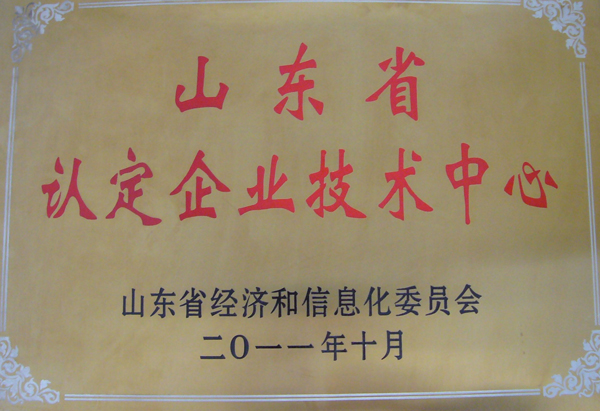 山东省
认定企业技术中心
山东省经济和信息化委员会
二〇一一年十月